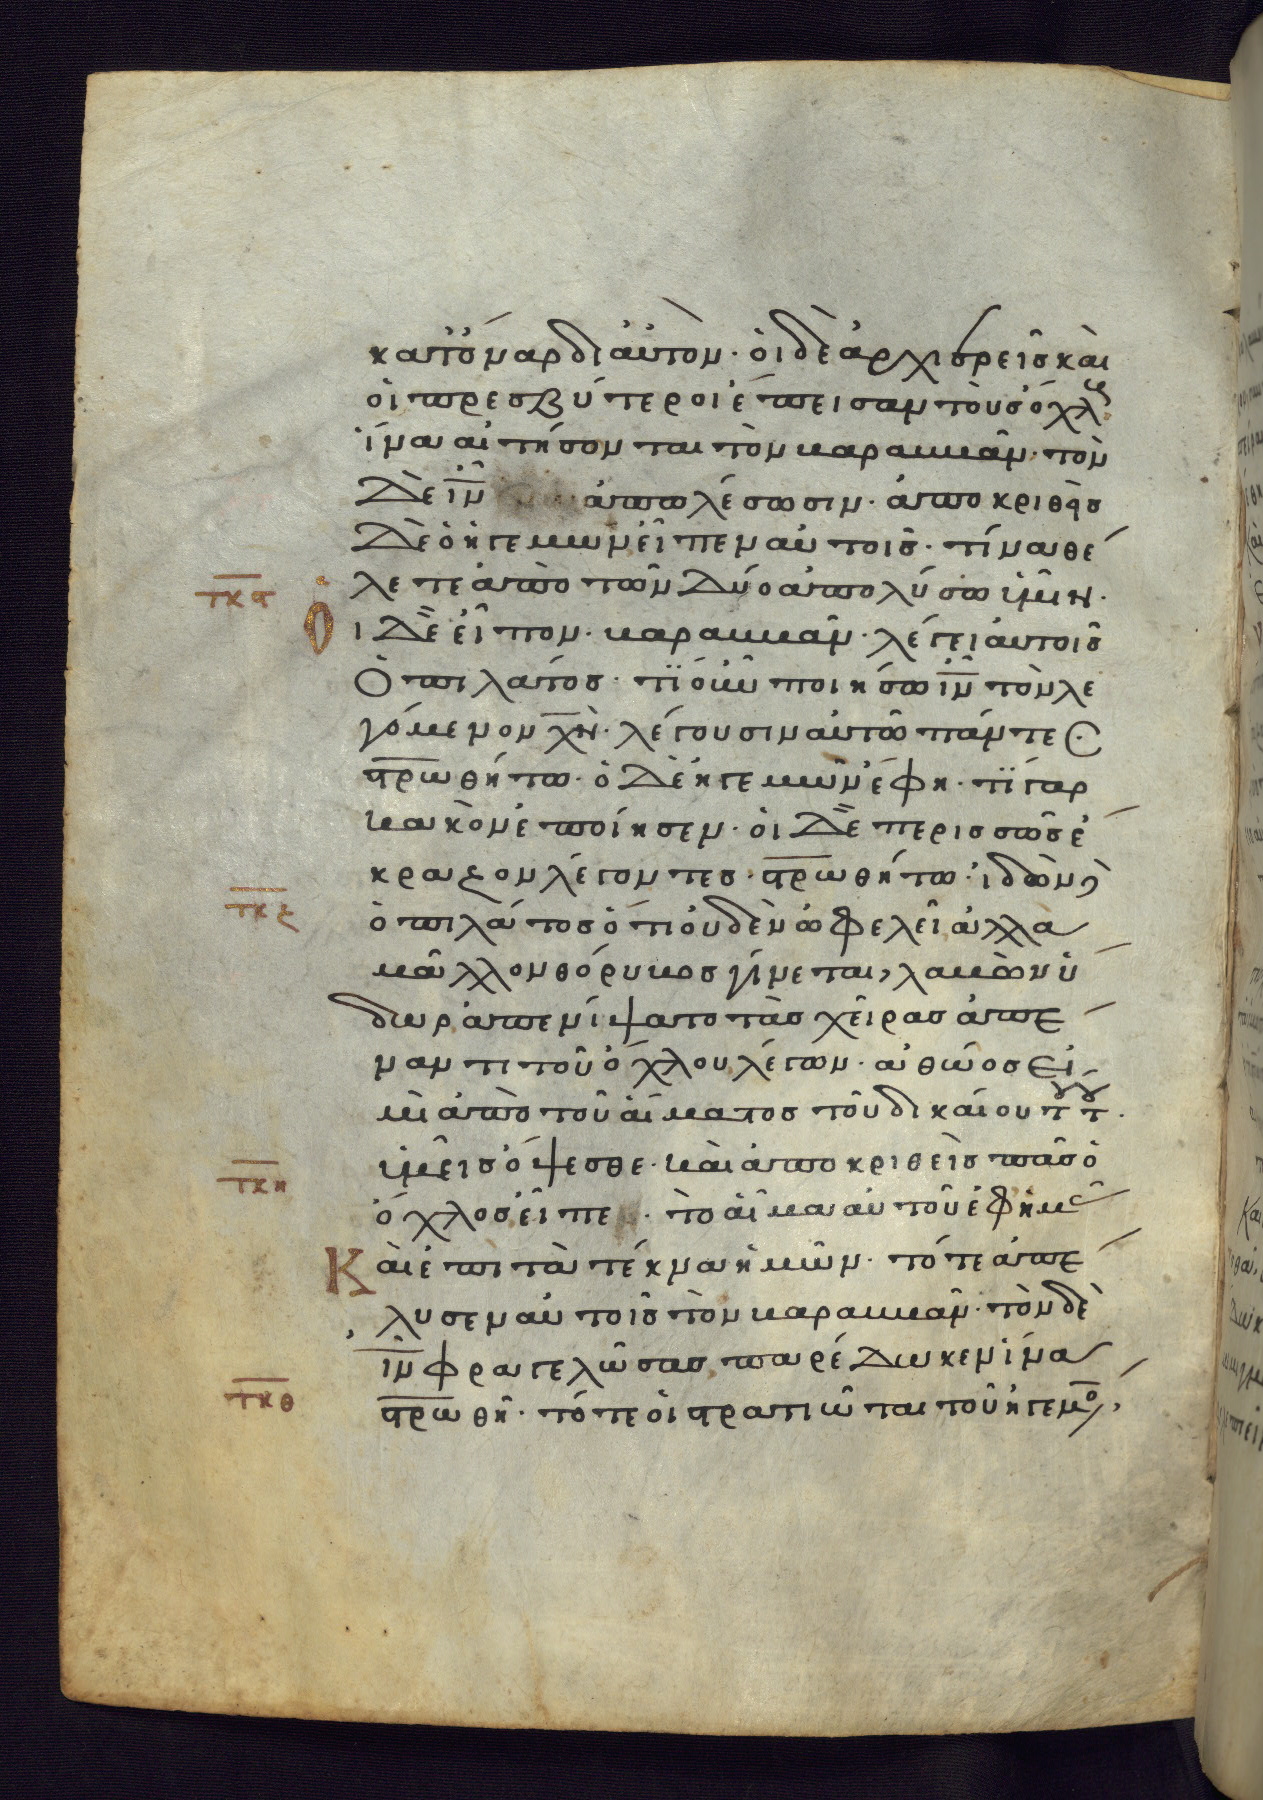 κατ' ὄναρ δι' αὐτόν· οἱ δὲ ἀρχιερεῖς καὶ
οἱ πρεσβύτεροι ἔπεισαν τοὺς ὄχλ
ἵνα αἰτήσονται τὸν βαραββᾶν· τὸν
δὲ ι̅ν̅ ἀπολέσωσιν· ἀποκριθεὶς
δὲ ὁ ἡγεμὼν εἶπεν αὐτοῖς· τίνα θέ
τκϛ
λετε ἀπὸ τῶν δύο ἀπολύσω ὑμῖν·
Οἱ δὲ εἶπον· βαραββᾶν· λέγει αὐτοῖς
ὁ πιλάτος· τί οὖν ποιήσω ι̅ν̅ τὸν λε
γόμενον χ̅ν̅· λέγουσιν αὐτῶ πάντες·
σ̅τ̅ρ̅ωθήτω· ὁ δὲ ἡγεμὼν ἔφη· τί γὰρ
κακὸν ἐποίησεν· οἱ δὲ περισσῶς ἔ
κραζον λέγοντες· σ̅τ̅ρ̅ωθήτω· ἰδὼν δὲ
τκζ
ὁ πιλάτος ὅτι οὐδὲν ὠφελεῖ ἀλλὰ
μᾶλλον θόρυβος γίνεται, λαβὼν ὕ
δωρ ἀπενίψατο τὰς χεῖρας ἀπέ
ναντι τοῦ ὄχλου λέγων· ἀθῶος εἰ
μὶ ἀπὸ τοῦ αἵματος τοῦ δικαίου τούτου·
ὑμεῖς ὄψεσθε· καὶ ἀποκριθεὶς πᾶς ὁ
τκη
ὄχλος εἶπε· τὸ αἷμα αὐτοῦ ἐφ' ἡμᾶς
Καὶ ἐπὶ τὰ τέκνα ἡμῶν· τότε ἀπέ
λυσεν αὐτοῖς τὸν βαραββᾶν· τὸν δὲ
ι̅ν̅ φραγελώσας παρέδωκεν ἵνα
τκθ
σ̅τ̅ρ̅ωθῆ· τότε οἱ στρατιῶται τοῦ ἡγεμό,